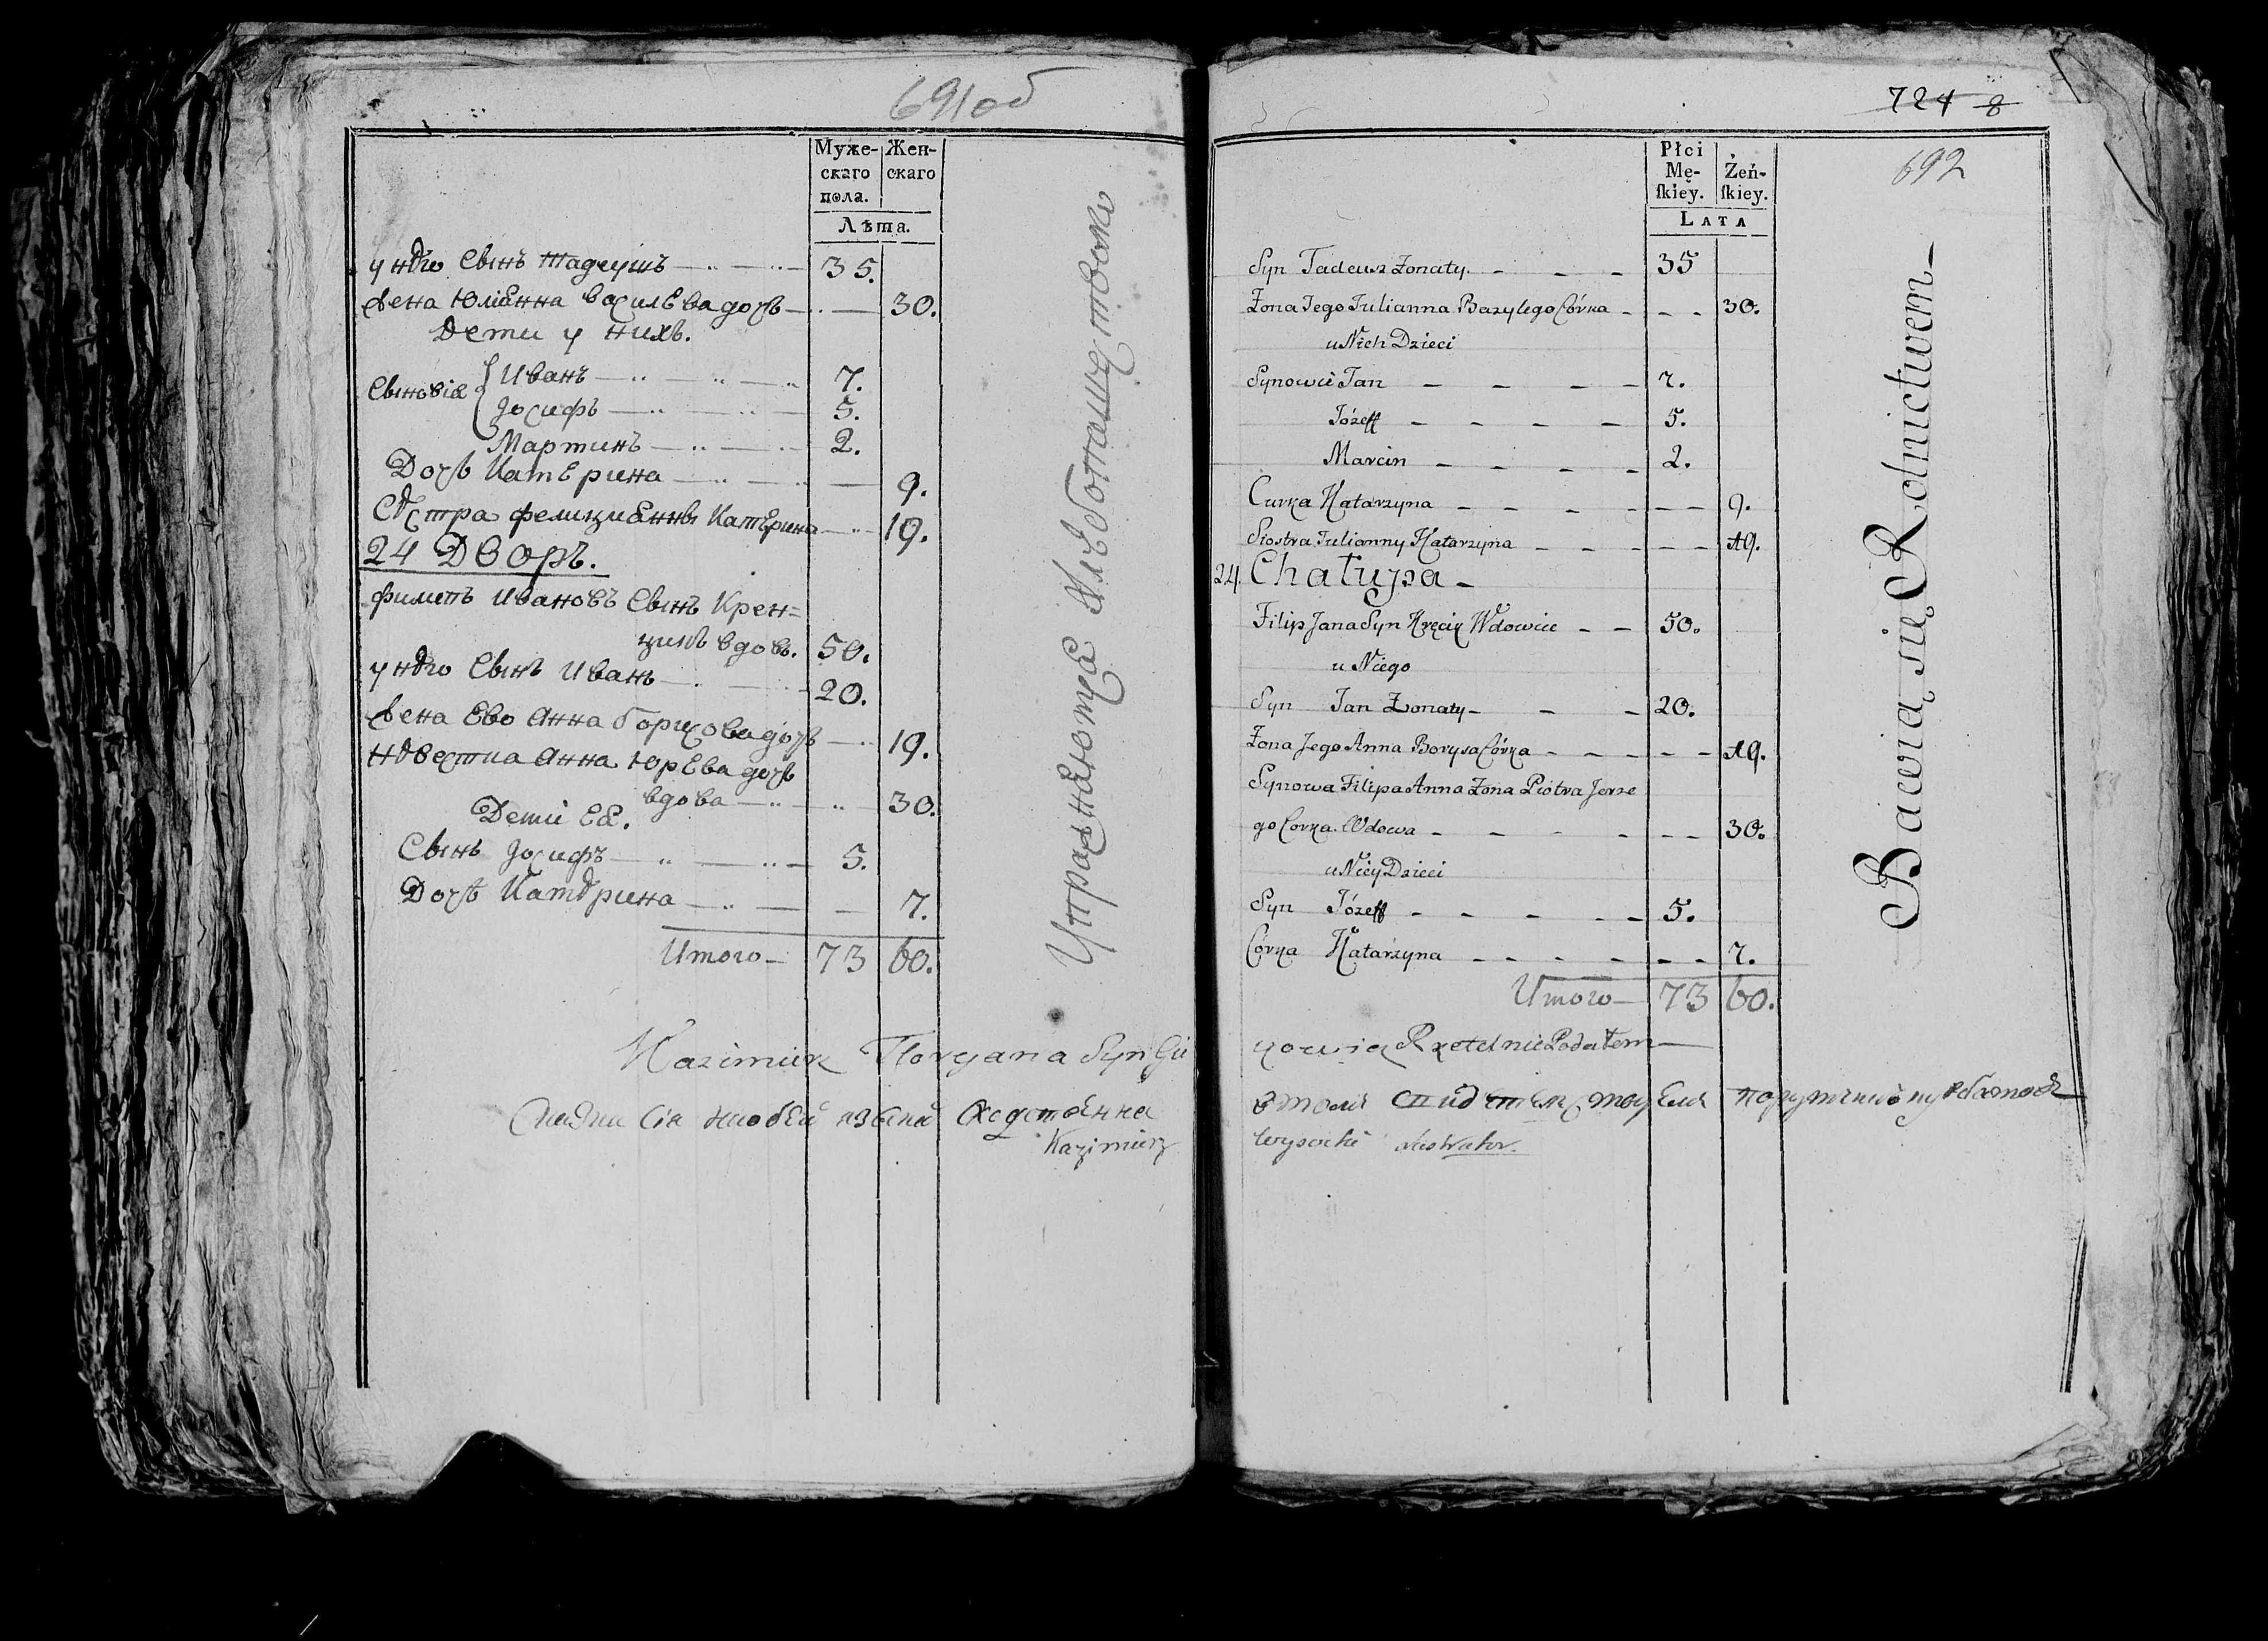 691об
Муже-
скаго
пола.
Жен-
скаго
Лѣта.
у него Сынъ Тадеушъ 35.
Жена Юлианна Василева дочь 30.
Дети у нихъ.
Сыновія Иванъ 7.
Іосифъ 5.
Мартинъ 2.
Дочь Катерина 9.
Сестра Катерина 19.
24 Дворъ.
Филипъ Ивановъ Сынъ Крен=
цикъ вдовъ. 50.
у него Сынъ Иванъ 20.
Жена Ево Анна Борисова дочь 19.
Невестка Анна Юрева дочь
вдова 30.
Дети Её.
Сынъ Іосифъ 5.
Дочь Катерина 7.
Итого 73 60.
Упражняютца Хлебопашеством
Kazimierz Floryana Syn
Kazimierz
724 8
692
Płci
Mę-
ſkiey.
Żeń-
ſkiey.
LATA
Syn Tadeusz Żonaty 35
Żona Jego Julianna Bazylego Córka 30.
u Nich Dzieci
Synowie Jan 7.
Józeff 5.
Marcin 2.
Curka Katarzyna 9.
Siostra Julianny Katarzyna 19.
24. Chałupa
Filip Jana Syn Kręcik Wdowiec 50.
u Niego
Syn Jan Żonaty 20.
Żona Jego Anna Borysa Córka 19.
Synowa Filipa Anna Żona Piotra Jerze
go Corka Wdowa 30.
u Niey Dzieci
Syn Józeff 5.
Córka Katarzyna 7.
Итого 73 60.
Bawią się Rolnictwem
Rzetelnie Podałem
Wysocki